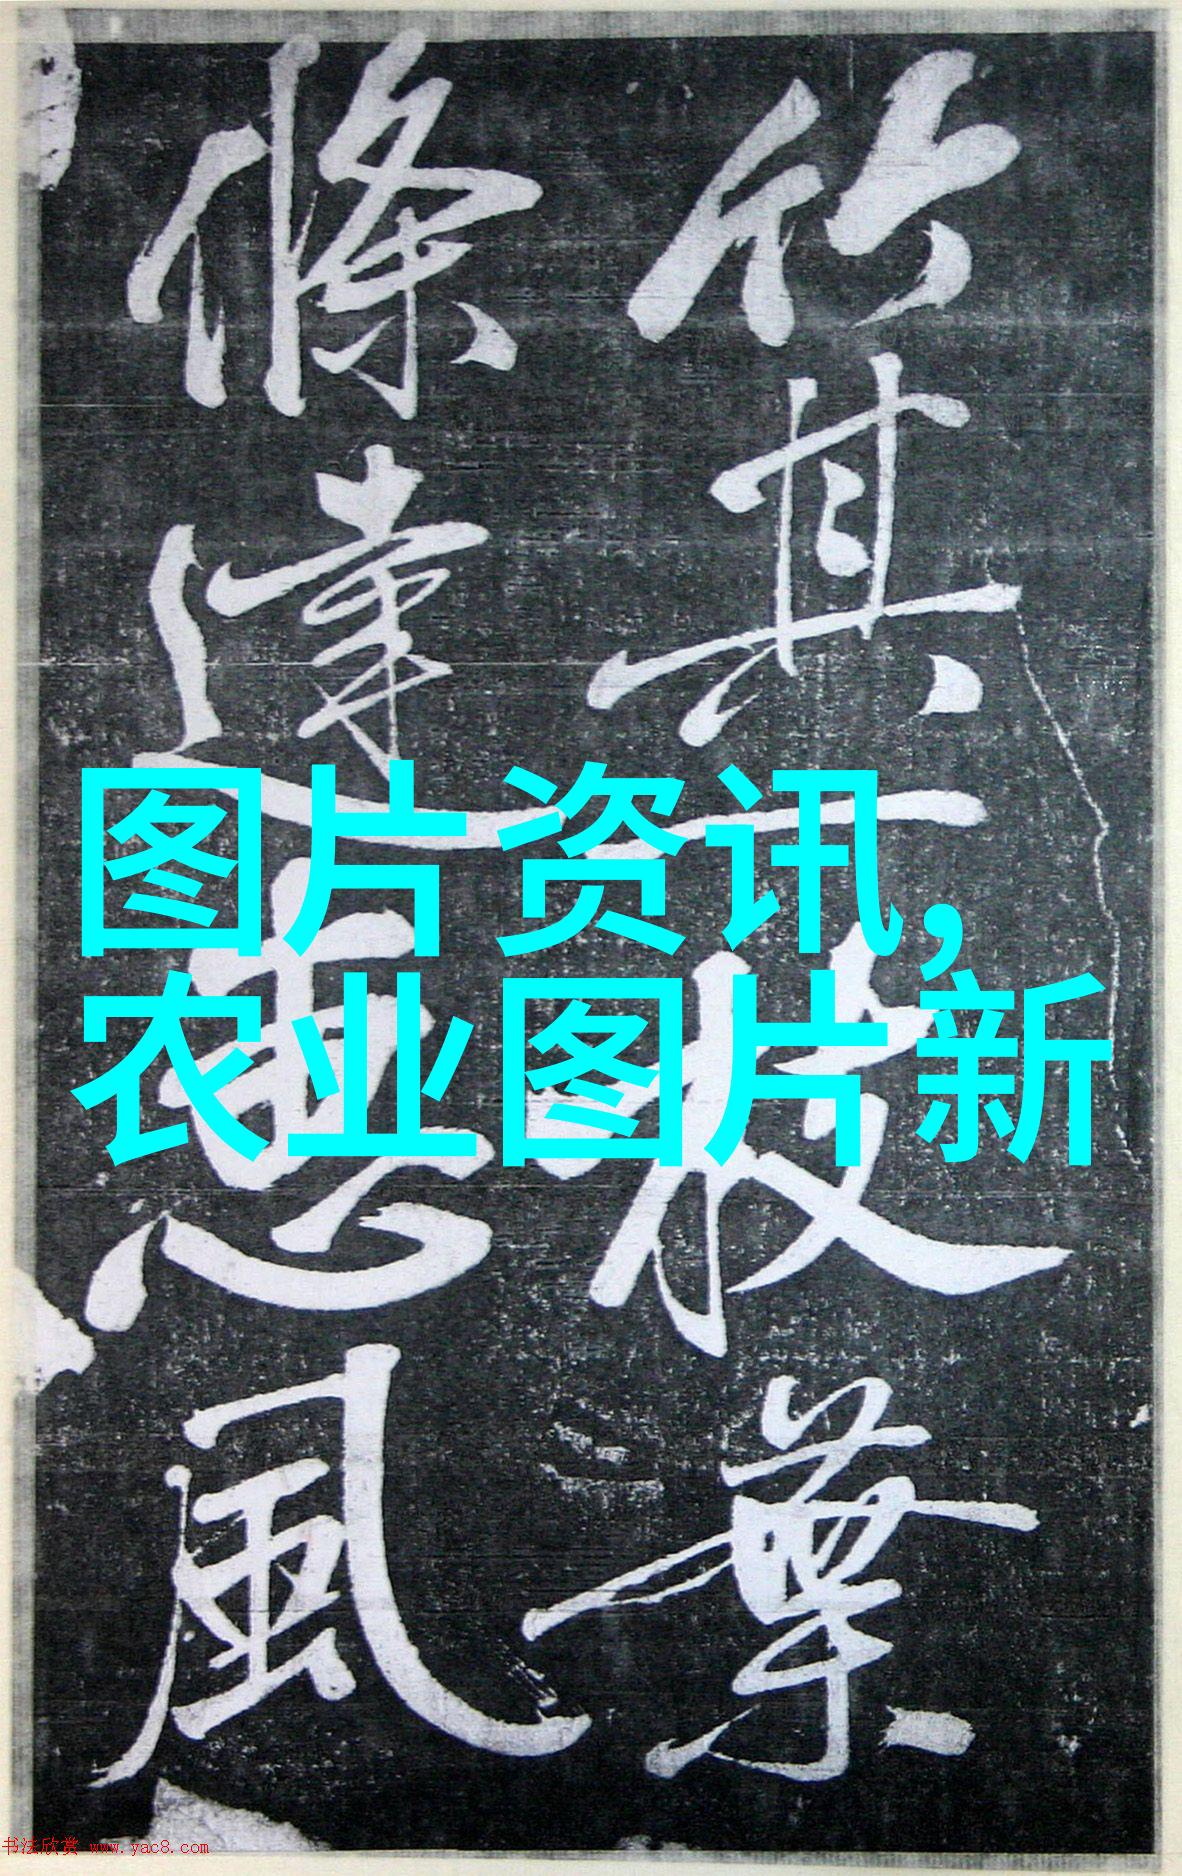 竹其枝葉
條達惠風
图片资讯,
农业图片新
书法欣赏 www.yac8.com